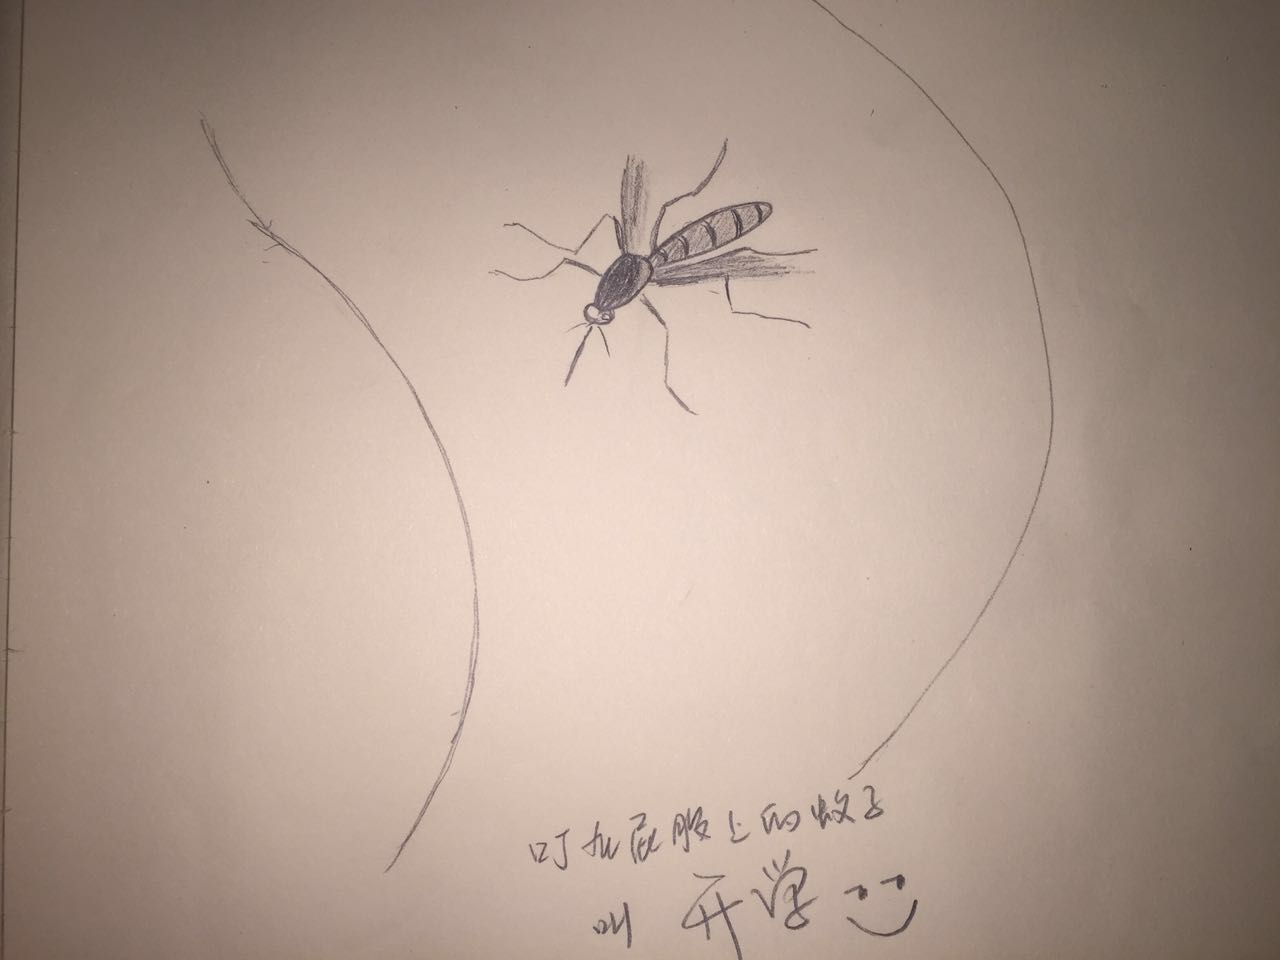 叮在屁股上的蚊子
叫 开学